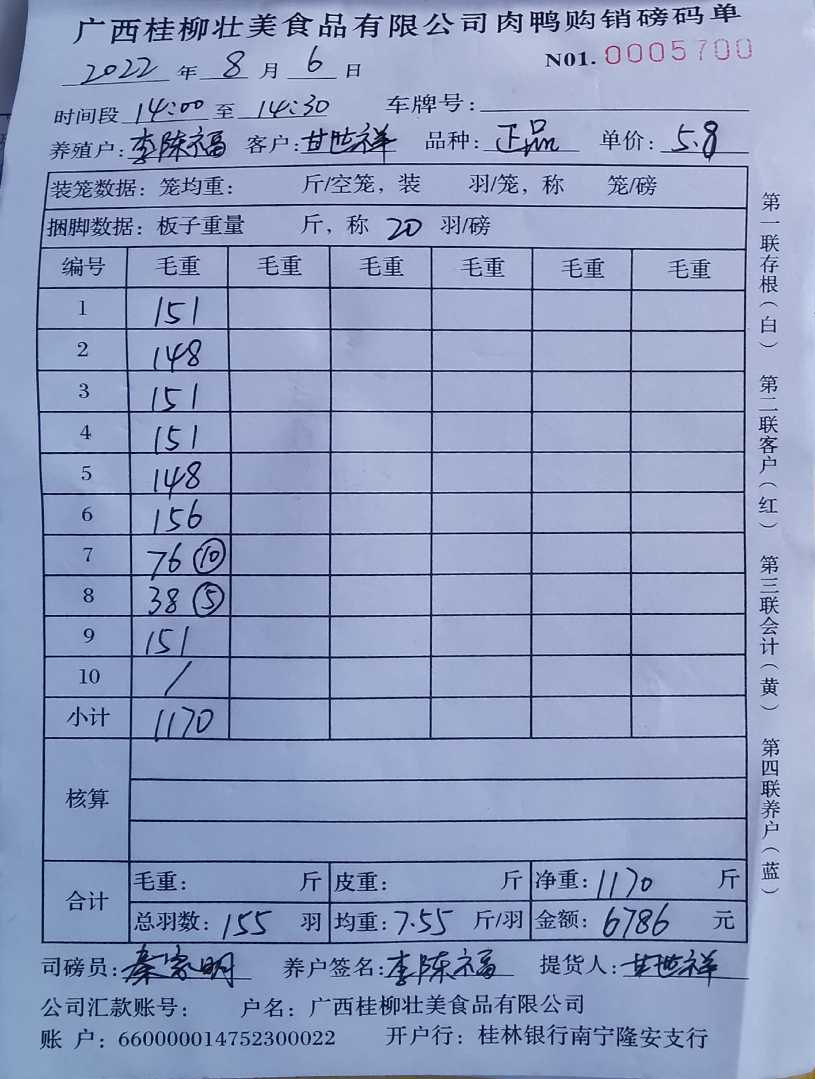 广西桂柳壮美食品有限公司肉鸭购销磅码单
2022 年 8 月 6 日 N01. 0005700
时间段 14:00 至 14:30 车牌号:
养殖户: 李陈福 客户: 甘世祥 品种: 正品 单价: 5.8
装笼数据: 笼均重: 斤/空笼, 装 羽/笼, 称 笼/磅
捆脚数据: 板子重量 斤, 称 20 羽/磅
编号 毛重 毛重 毛重 毛重 毛重 毛重
1 151
2 148
3 151
4 151
5 148
6 156
7 76 ⑩
8 38 ⑤
9 151
10 /
小计 1170
核算
合计 毛重: 斤 皮重: 斤 净重: 1170 斤
总羽数: 155 羽 均重: 7.55 斤/羽 金额: 6786 元
司磅员: 秦家明 养户签名: 李陈福 提货人: 甘世祥
公司汇款账号: 户名: 广西桂柳壮美食品有限公司
账 户: 660000014752300022 开户行: 桂林银行南宁隆安支行
第一联存根(白) 第二联客户(红) 第三联会计(黄) 第四联养户(蓝)